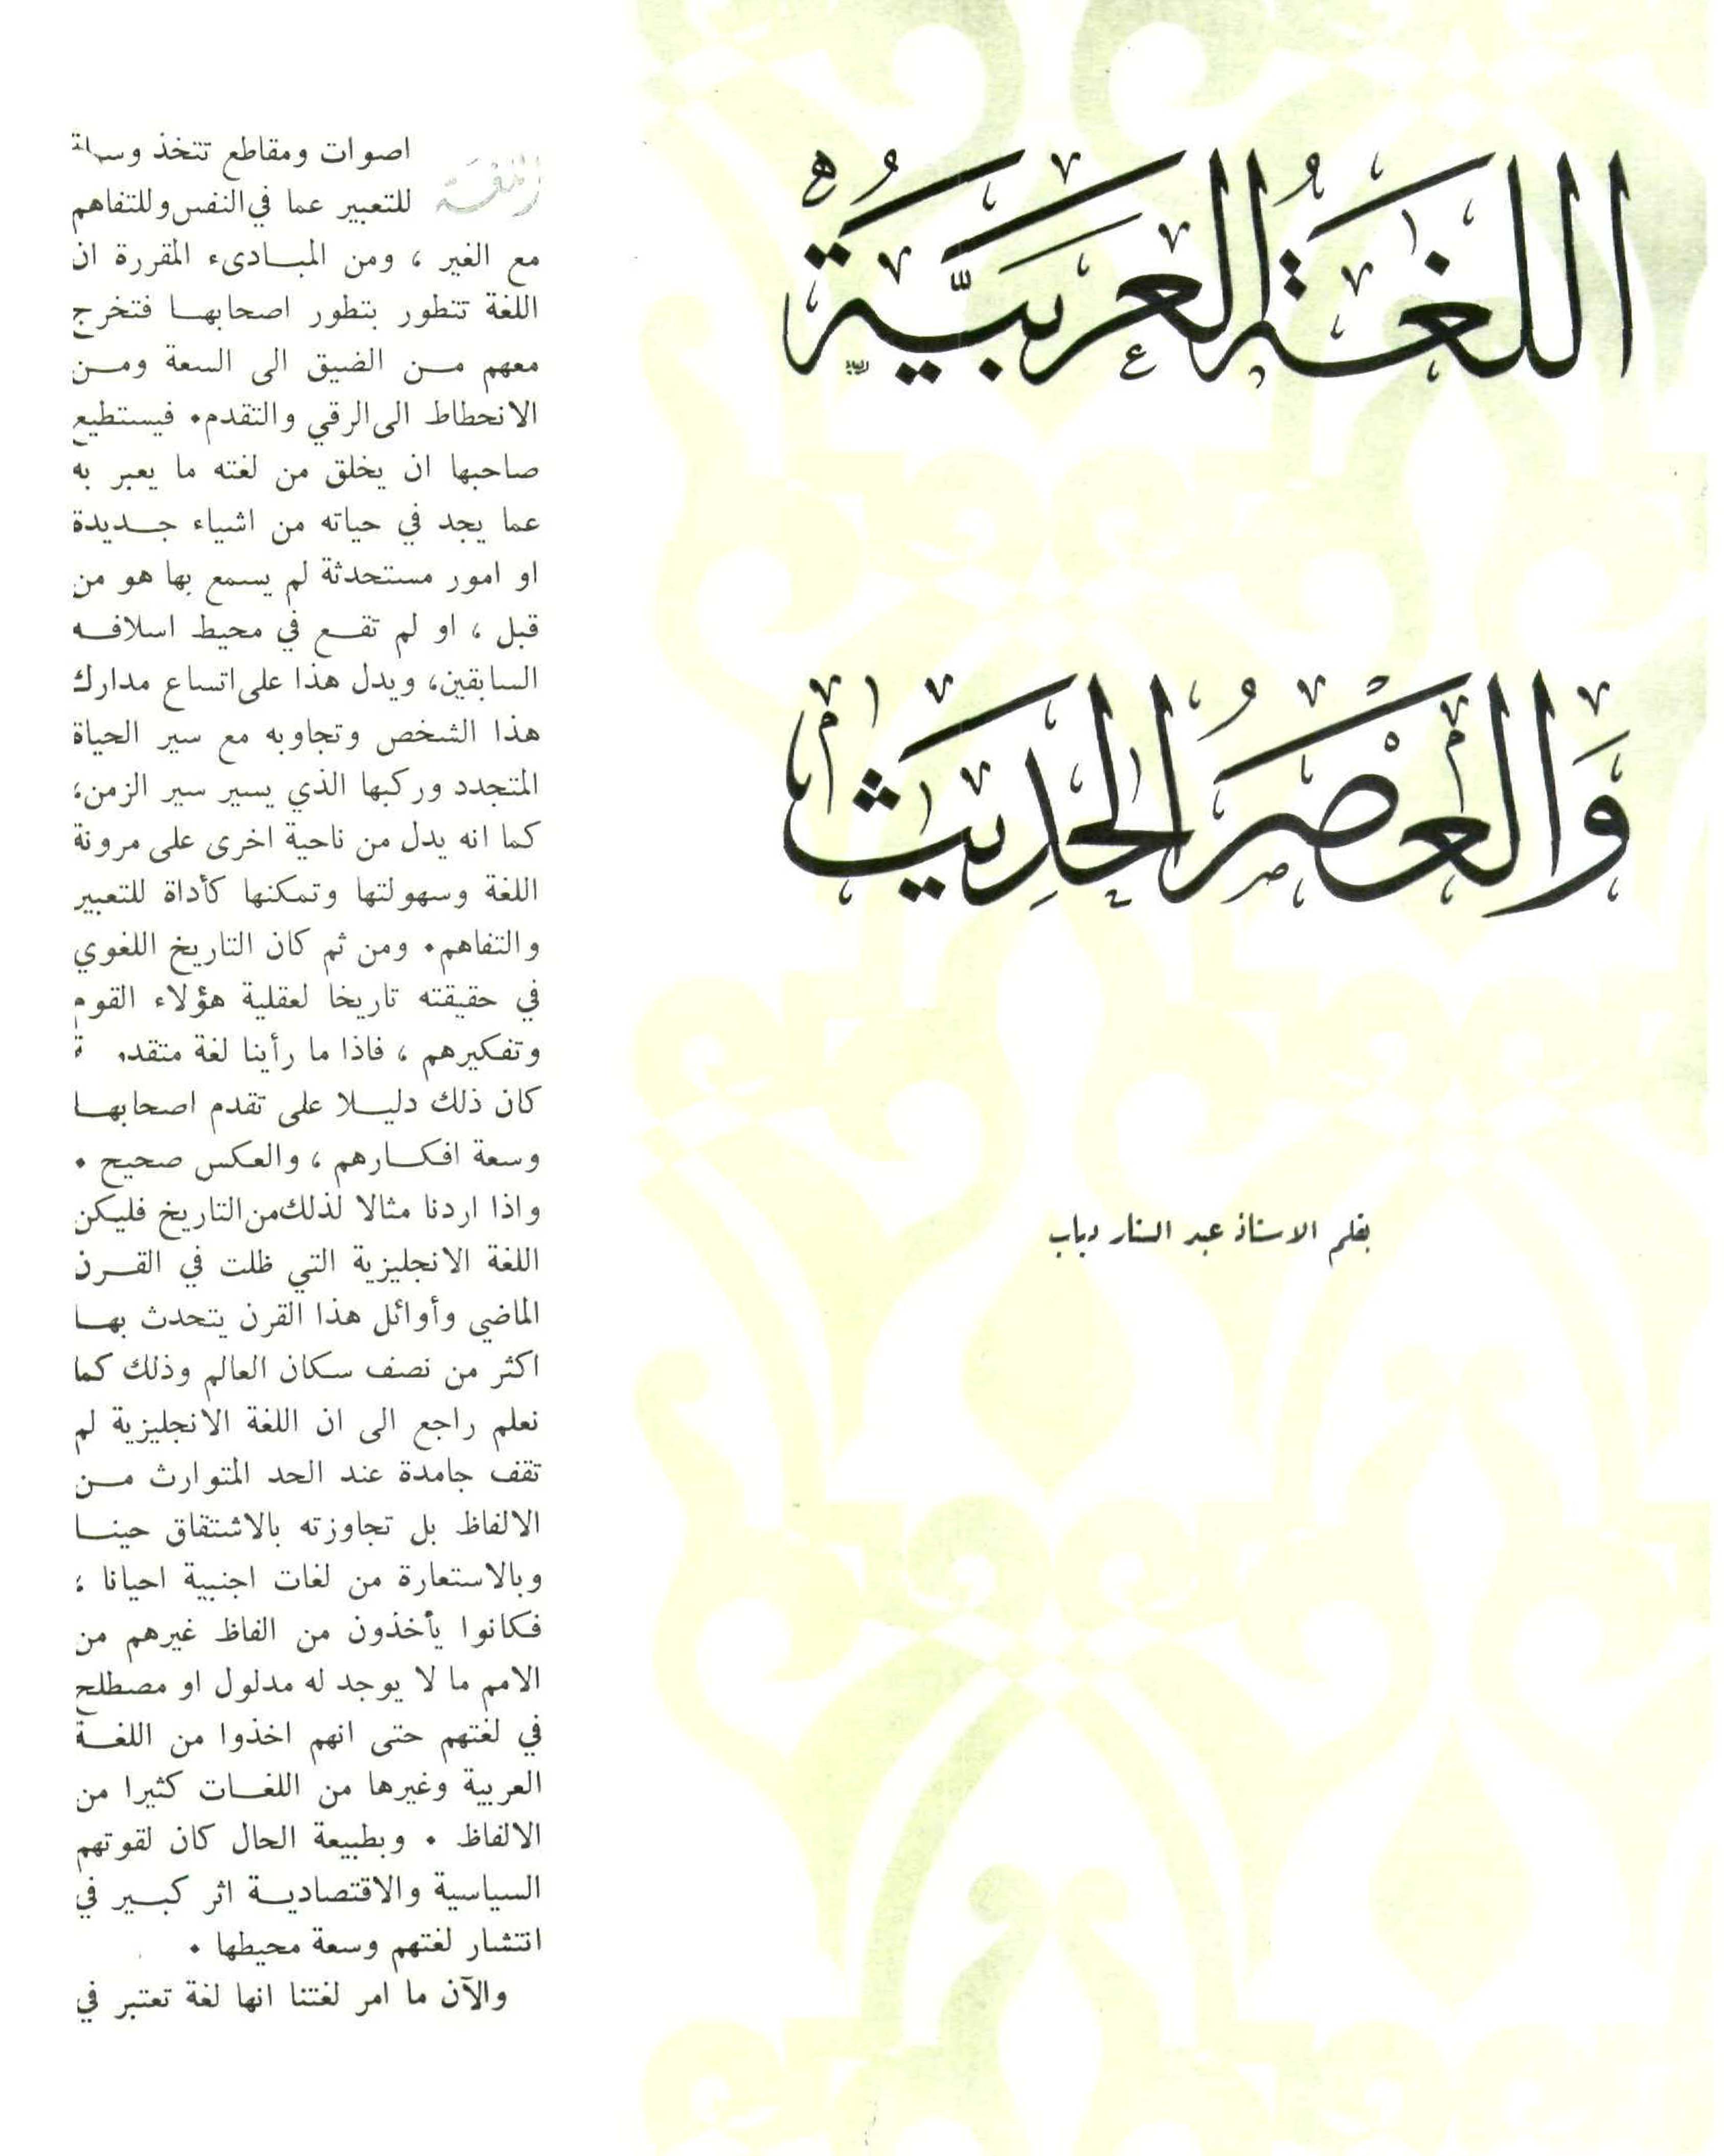 اللغة العربية
والعصر الحديث
بقلم الاستاذ عبد الستار دباب
اللغة
اصوات ومقاطع تتخذ وسيلة
للتعبير عما في النفس وللتفاهم
مع الغير ، ومن المبادىء المقررة ان
اللغة تتطور بتطور اصحابها فتخرج
معهم من الضيق الى السعة ومن
الانحطاط الى الرقي والتقدم. فيستطيع
صاحبها ان يخلق من لغته ما يعبر به
عما يجد في حياته من اشياء جديدة
او امور مستحدثة لم يسمع بها هو من
قبل ، او لم تقع في محيط اسلافه
السابقين، ويدل هذا على اتساع مدارك
هذا الشخص وتجاوبه مع سير الحياة
المتجدد وركبها الذي يسير سير الزمن،
كما انه يدل من ناحية اخرى على مرونة
اللغة وسهولتها وتمكنها كأداة للتعبير
والتفاهم. ومن ثم كان التاريخ اللغوي
في حقيقته تاريخا لعقلية هؤلاء القوم
وتفكيرهم ، فاذا ما رأينا لغة متقدمة
كان ذلك دليلا على تقدم اصحابها
وسعة افكارهم ، والعكس صحيح .
واذا اردنا مثالا لذلك من التاريخ فليكن
اللغة الانجليزية التي ظلت في القرن
الماضي وأوائل هذا القرن يتحدث بها
اكثر من نصف سكان العالم وذلك كما
نعلم راجع الى ان اللغة الانجليزية لم
تقف جامدة عند الحد المتوارث من
الالفاظ بل تجاوزته بالاشتقاق حينا
وبالاستعارة من لغات اجنبية احيانا ،
فكانوا يأخذون من الفاظ غيرهم من
الامم ما لا يوجد له مدلول او مصطلح
في لغتهم حتى انهم اخذوا من اللغة
العربية وغيرها من اللغات كثيرا من
الالفاظ . وبطبيعة الحال كان لقوتهم
السياسية والاقتصادية اثر كبير في
انتشار لغتهم وسعة محيطها .
والآن ما امر لغتنا انها لغة تعتبر في